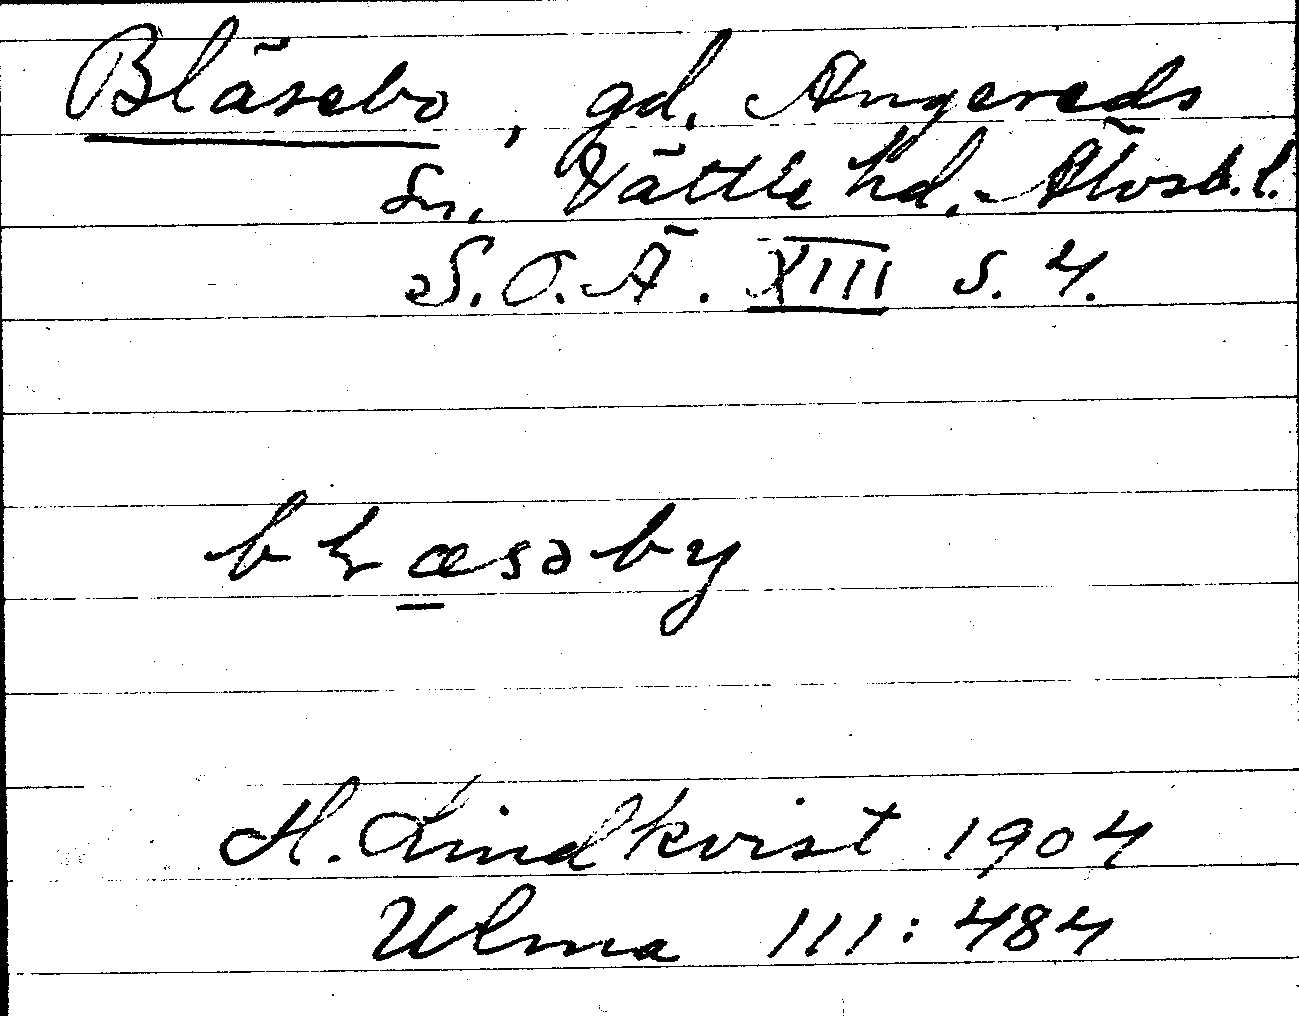 Bläsebo, gd, Angereds
sn, Vättle hd. Älvsb.l.
S.O.Ä. XIII s. 4.
bɫæsəby
H. Lindkvist 1904
Ulma 111:484